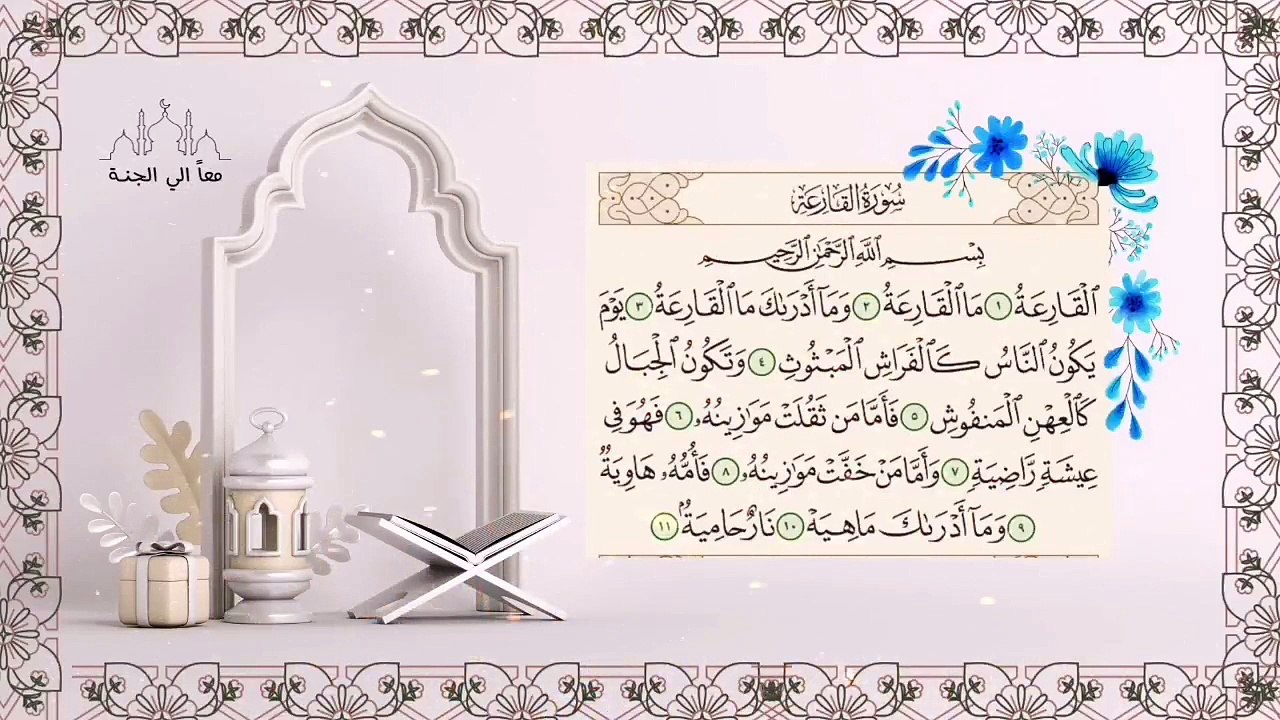 معاً الي الجنة
سُورَةُ القَارِعَةِ
بِسْمِ ٱللَّهِ ٱلرَّحْمَٰنِ ٱلرَّحِيمِ
ٱلْقَارِعَةُ ١ مَا ٱلْقَارِعَةُ ٢ وَمَآ أَدْرَىٰكَ مَا ٱلْقَارِعَةُ ٣ يَوْمَ
يَكُونُ ٱلنَّاسُ كَٱلْفَرَاشِ ٱلْمَبْثُوثِ ٤ وَتَكُونُ ٱلْجِبَالُ
كَٱلْعِهْنِ ٱلْمَنفُوشِ ٥ فَأَمَّا مَن ثَقُلَتْ مَوَٰزِينُهُۥ ٦ فَهُوَ فِي
عِيشَةٍ رَّاضِيَةٍ ٧ وَأَمَّا مَنْ خَفَّتْ مَوَٰزِينُهُۥ ٨ فَأُمُّهُۥ هَاوِيَةٌ
٩ وَمَآ أَدْرَىٰكَ مَا هِيَهْ ١٠ نَارٌ حَامِيَةٌۢ ١١